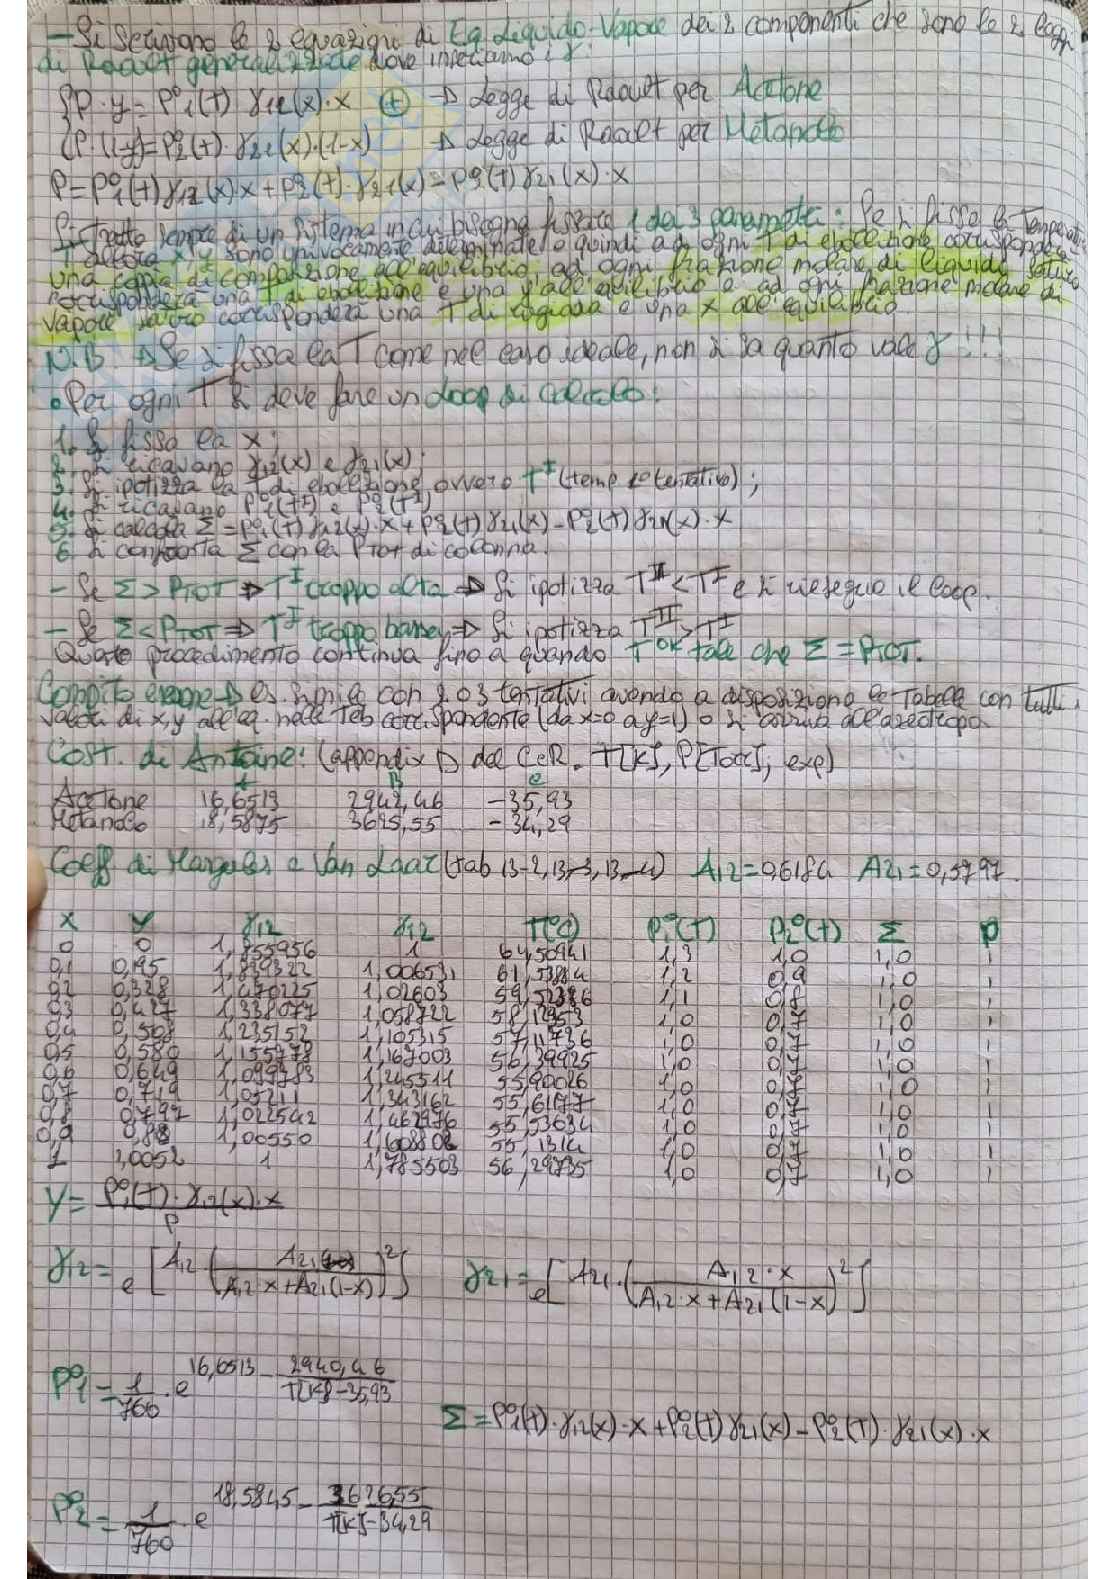 - Si scrivono le 2 equazioni di Eq. Liquido-Vapore dei 2 componenti che sono le 2 leggi
di Raoult generalizzate dove inseriamo i γ:
{P·y = P°1(t)·γ12(x)·x (+) → Legge di Raoult per Acetone
{P·(1-y)=P°2(t)·γ21(x)·(1-x) → Legge di Raoult per Metanolo
P=P°1(t)γ12(x)·x+P°2(t)·γ21(x)-P°2(t)γ21(x)·x
Si tratta sempre di un sistema in cui bisogna fissare 1 dei 3 parametri: Se si fissa la Temperatura
T allora x, y sono univocamente determinate e quindi ad ogni T di ebollizione corrisponderà
una coppia di composizione all'equilibrio, ad ogni frazione molare di liquido saturo
corrisponderà una T di ebollizione e una y all'equilibrio e ad ogni frazione molare di
vapore saturo corrisponderà una T di rugiada e una x all'equilibrio.
N.B. → Se si fissa la T come nel caso ideale, non si sa quanto vale γ!!!
• Per ogni T si deve fare un Loop di Calcolo:
1. Si fissa la x;
2. Si ricavano γ12(x) e γ21(x);
3. Si ipotizza la T di ebollizione ovvero T^I (temp tentativo);
4. Si ricavano P°1(t^I) e P°2(t^I)
5. Si calcola Σ=P°1(t)γ12(x)·x+P°2(t)γ21(x)-P°2(t)γ21(x)·x
6. Si confronta Σ con la PTOT di colonna.
- Se Σ>PTOT ⇒ T^I troppo alta ⇒ Si ipotizza T^II<T^I e si riesegue il loop.
- Se Σ<PTOT ⇒ T^I troppo bassa ⇒ Si ipotizza T^II>T^I
Questo procedimento continua fino a quando T^OK tale che Σ=PTOT.
Compito esame → es. simile con 2 o 3 tentativi avendo a disposizione le Tabelle con tutti i
valori di x,y all'eq. nelle Teb corrispondente (da x=0 a y=1) o si arriva all'azeotropo.
Cost. di Antoine: (appendix D del C&R. T[K], P[Torr], exp)
A B C
Acetone 16,6513 2940,46 -35,93
Metanolo 18,5875 3625,55 -34,29
Coeff di Margules e Van Laar (tab 13-2, 13-3, 13-4) A12=0,6184 A21=0,5797.
x y γ12 γ12 T(°C) P°1(t) P°2(t) Σ P
0 0 1,855956 1 64,50941 1,3 1,0 1,0 1
0,1 0,195 1,839322 1,006531 61,53884 1,2 0,9 1,0 1
0,2 0,328 1,470225 1,02603 59,52386 1,1 0,8 1,0 1
0,3 0,427 1,338077 1,058722 58,12953 1,0 0,7 1,0 1
0,4 0,508 1,235152 1,105315 57,11736 1,0 0,7 1,0 1
0,5 0,580 1,155778 1,167003 56,39925 1,0 0,7 1,0 1
0,6 0,649 1,099783 1,245511 55,90026 1,0 0,7 1,0 1
0,7 0,719 1,05211 1,343162 55,6177 1,0 0,7 1,0 1
0,8 0,797 1,022542 1,462976 55,53634 1,0 0,7 1,0 1
0,9 0,88 1,00550 1,608808 55,1314 1,0 0,7 1,0 1
1 1,0052 1 1,785503 56,29735 1,0 0,7 1,0 1
y = P°1(t)·γ12(x)·x / P
γ12 = e[A12·(A21(1-x) / A12·x+A21(1-x))^2] γ21 = e[A21·(A12·x / A12·x+A21(1-x))^2]
P°1 = 1/760 · e^16,6513 - 2940,46 / T[K]-35,93
Σ=P°1(t)·γ12(x)·x+P°2(t)γ21(x)-P°2(t)·γ21(x)·x
P°2 = 1/760 · e^18,5845 - 3626,55 / T[K]-34,29